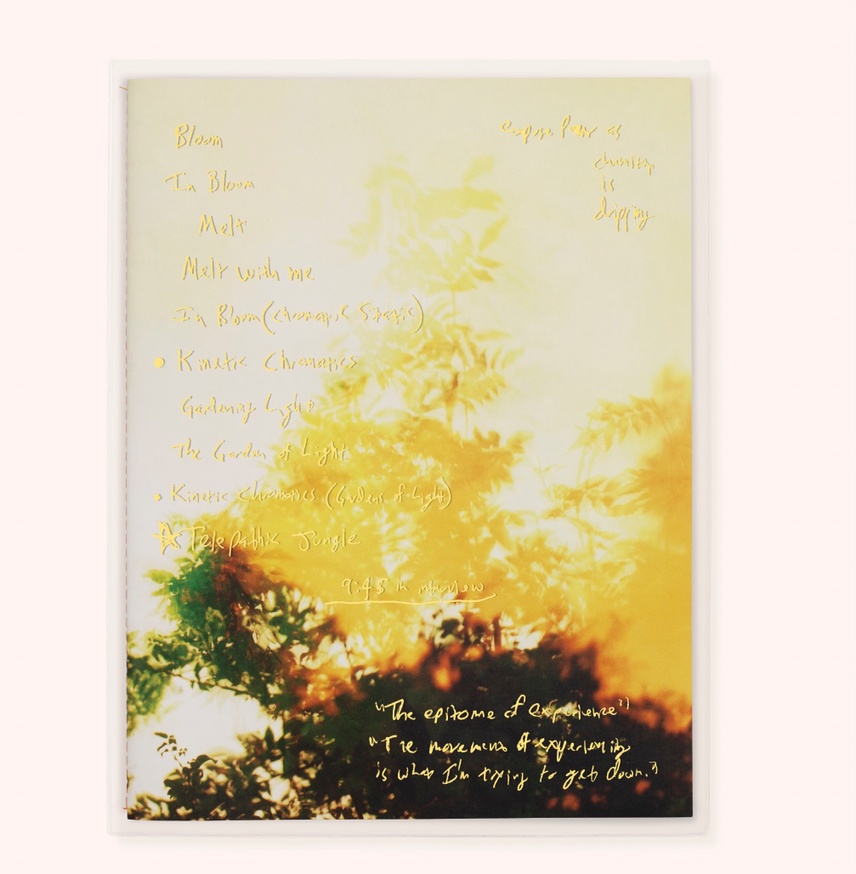 Bloom
In Bloom
Melt
Melt with me
In Bloom (Chromatic
• Kinetic Chromatics
Gardening Light
The Garden of Light
• Kinetic Chromatics (Gardens of Light)
☆ Telepathic Jungle
9:45 in interview
as
is
dripping
"The epitome of experience"
"The movement of experiencing
is what I'm trying to get down."